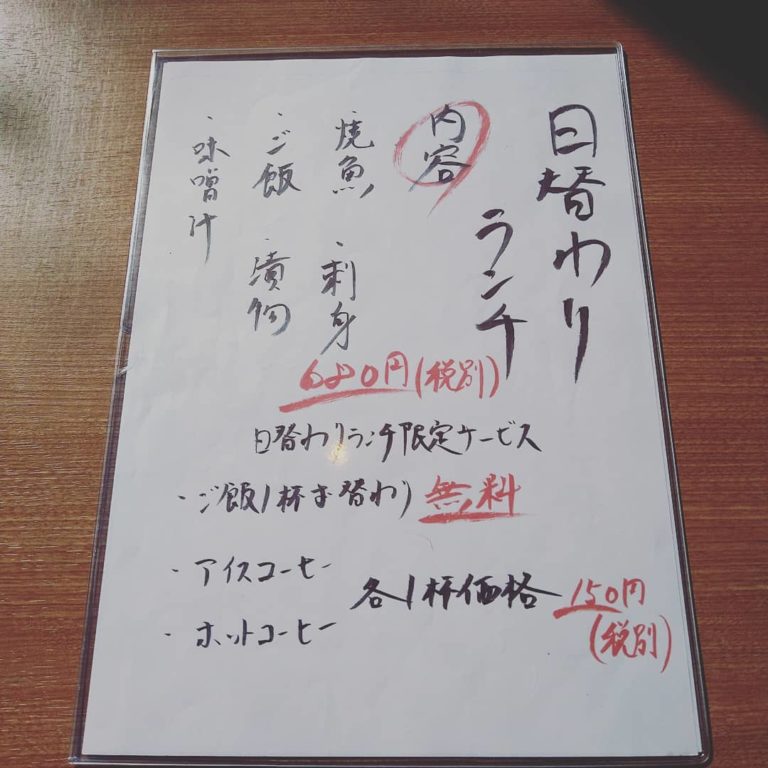 日替わり
ランチ
内容
・焼魚
・刺身
・ご飯
・漬物
・味噌汁
680円(税別)
日替わりランチ限定サービス
・ご飯1杯お替わり 無料
・アイスコーヒー
・ホットコーヒー
各1杯価格 150円
(税別)